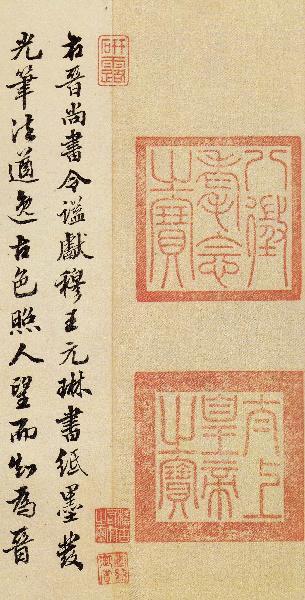 八徵
耄念
之寶
太上
皇帝
之寶
研露
右晉尚書令諡獻穆王元琳書紙墨發
光筆法遒逸古色照人望而知為晉